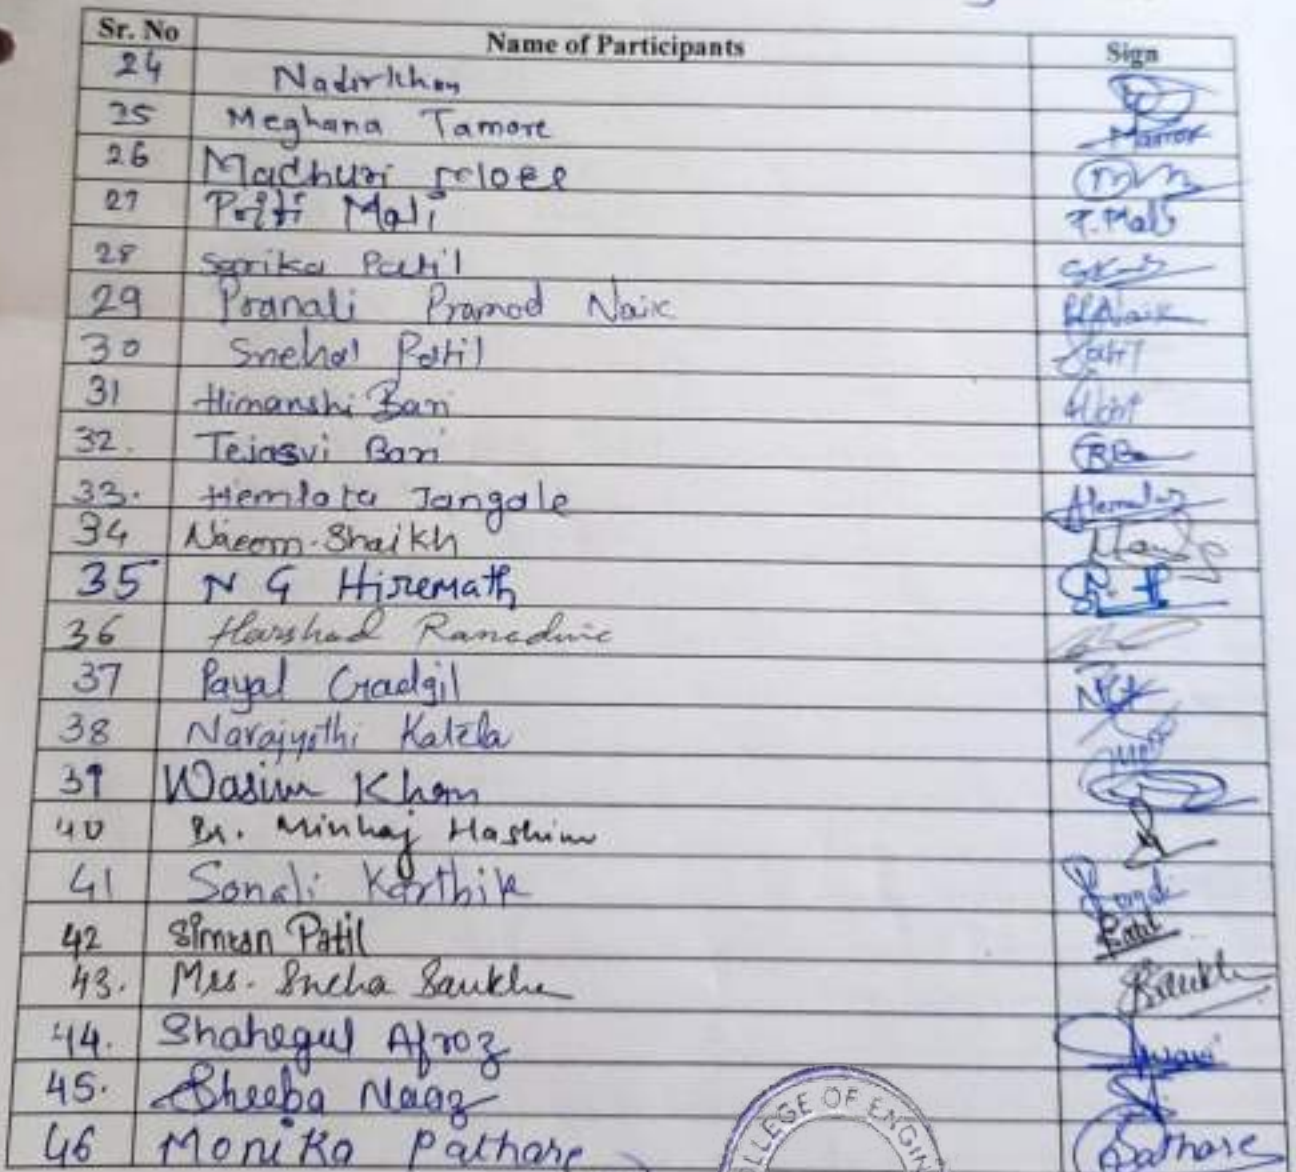 Sr. No Name of Participants Sign
24 Nadirkhan
25 Meghana Tamore
26 Madhuri
27 Priti Mali P. Mali
28 Sarika Patil
29 Pranali Pramod Naik PPNaik
30 Snehal Patil Patil
31 Himanshi Bari
32. Tejasvi Bari
33. Hemlata Jangale Hemlata
34 Naeem Shaikh
35 N G Hiremath
36 Harshad
37 Payal Gadgil
38 Navajyothi Katela
39 Wasim Khan
40 Dr. Minhaj Hashim
41 Sonali Karthik Sonali
42 Simran Patil Patil
43. Mrs. Sneha Saukhe SSaukhe
44. Shahegul Afroz
45. Sheeba Naaz
46 Monika Pathare Pathare
COLLEGE OF ENGIN